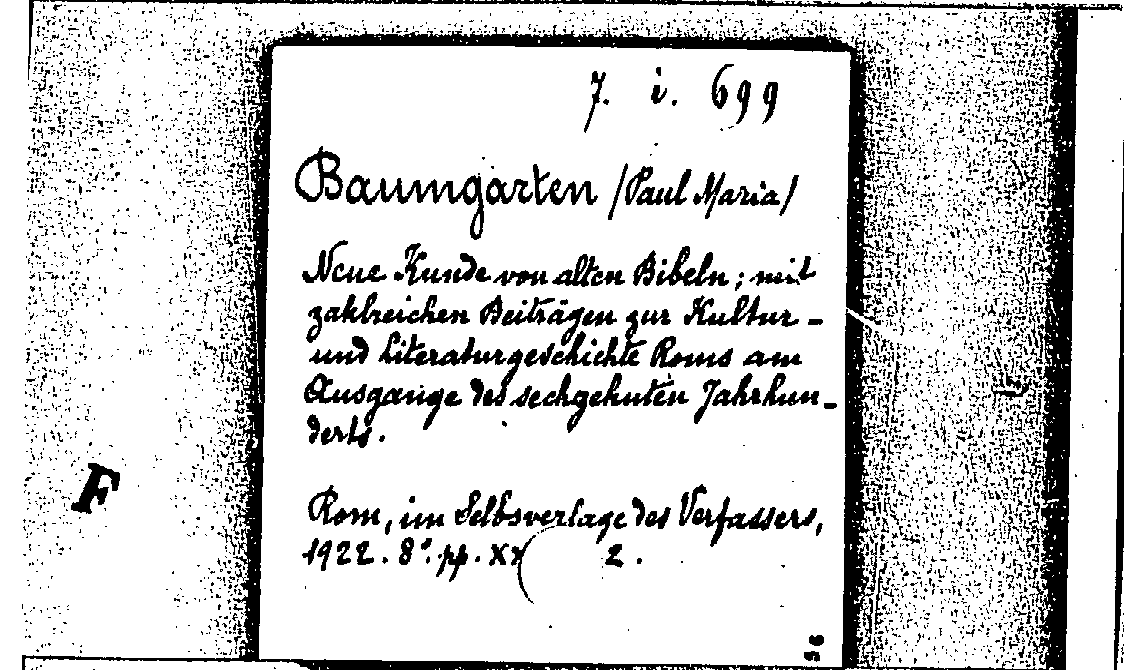 7. i. 699
Baumgarten (Paul Maria)
Neue Kunde von alten Bibeln; mit
zahlreichen Beiträgen zur Kultur-
und Literaturgeschichte Roms am
Ausgange des sechzehnten Jahrhun-
derts.
F
Rom, im Selbsverlage des Verfassers,
1922. 8°. pp. XX 2.